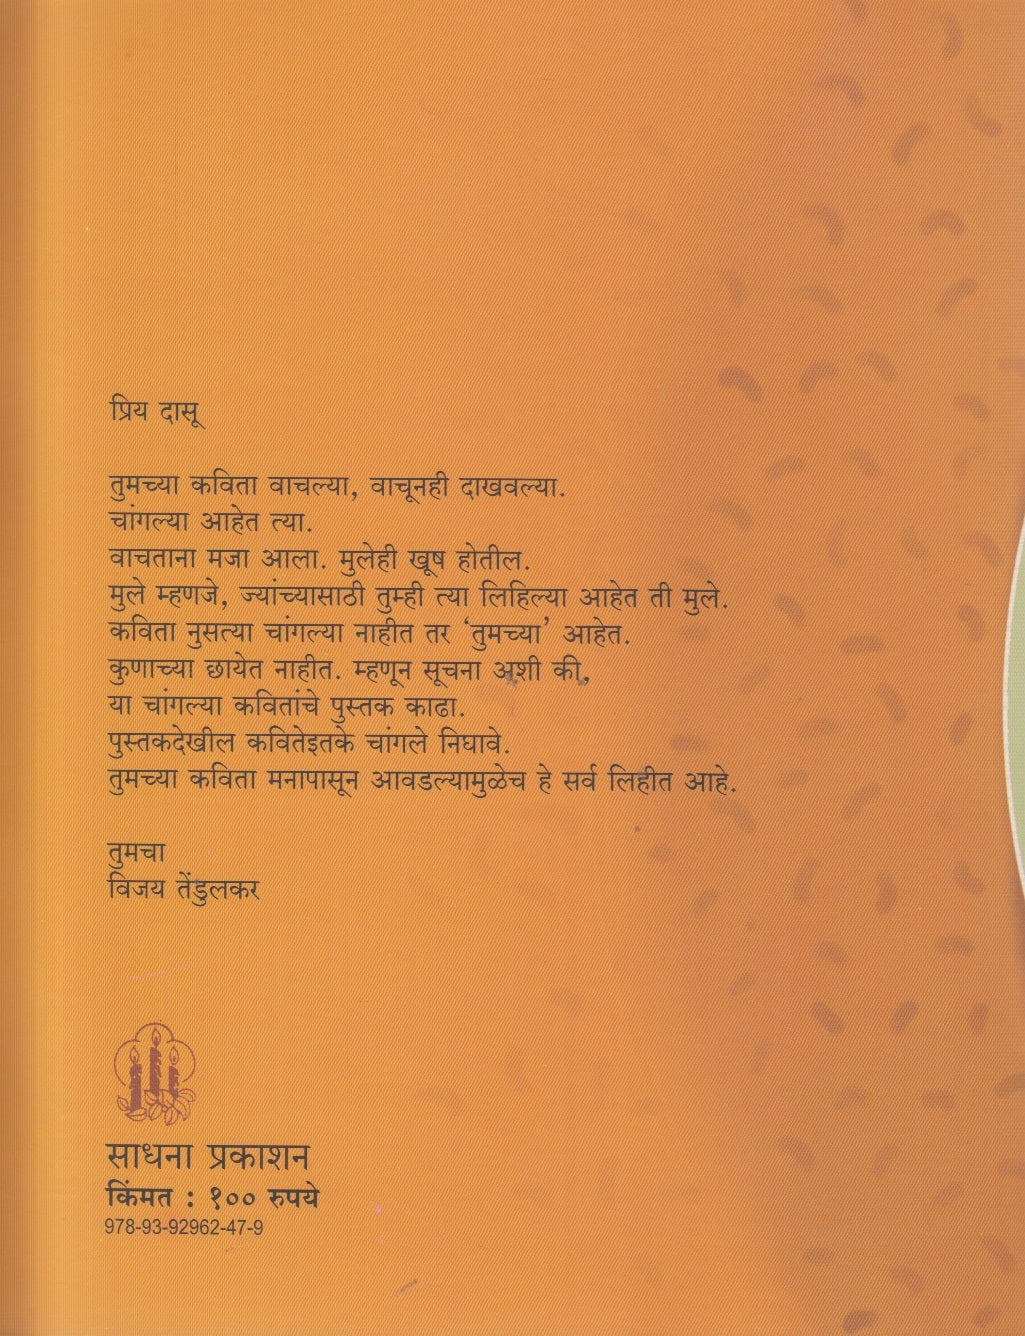 प्रिय दासू
तुमच्या कविता वाचल्या, वाचूनही दाखवल्या.
चांगल्या आहेत त्या.
वाचताना मजा आला. मुलेही खूष होतील.
मुले म्हणजे, ज्यांच्यासाठी तुम्ही त्या लिहिल्या आहेत ती मुले.
कविता नुसत्या चांगल्या नाहीत तर ‘तुमच्या’ आहेत.
कुणाच्या छायेत नाहीत. म्हणून सूचना अशी की,
या चांगल्या कवितांचे पुस्तक काढा.
पुस्तकदेखील कवितेइतके चांगले निघावे.
तुमच्या कविता मनापासून आवडल्यामुळेच हे सर्व लिहीत आहे.
तुमचा
विजय तेंडुलकर
साधना प्रकाशन
किंमत : १०० रुपये
978-93-92962-47-9